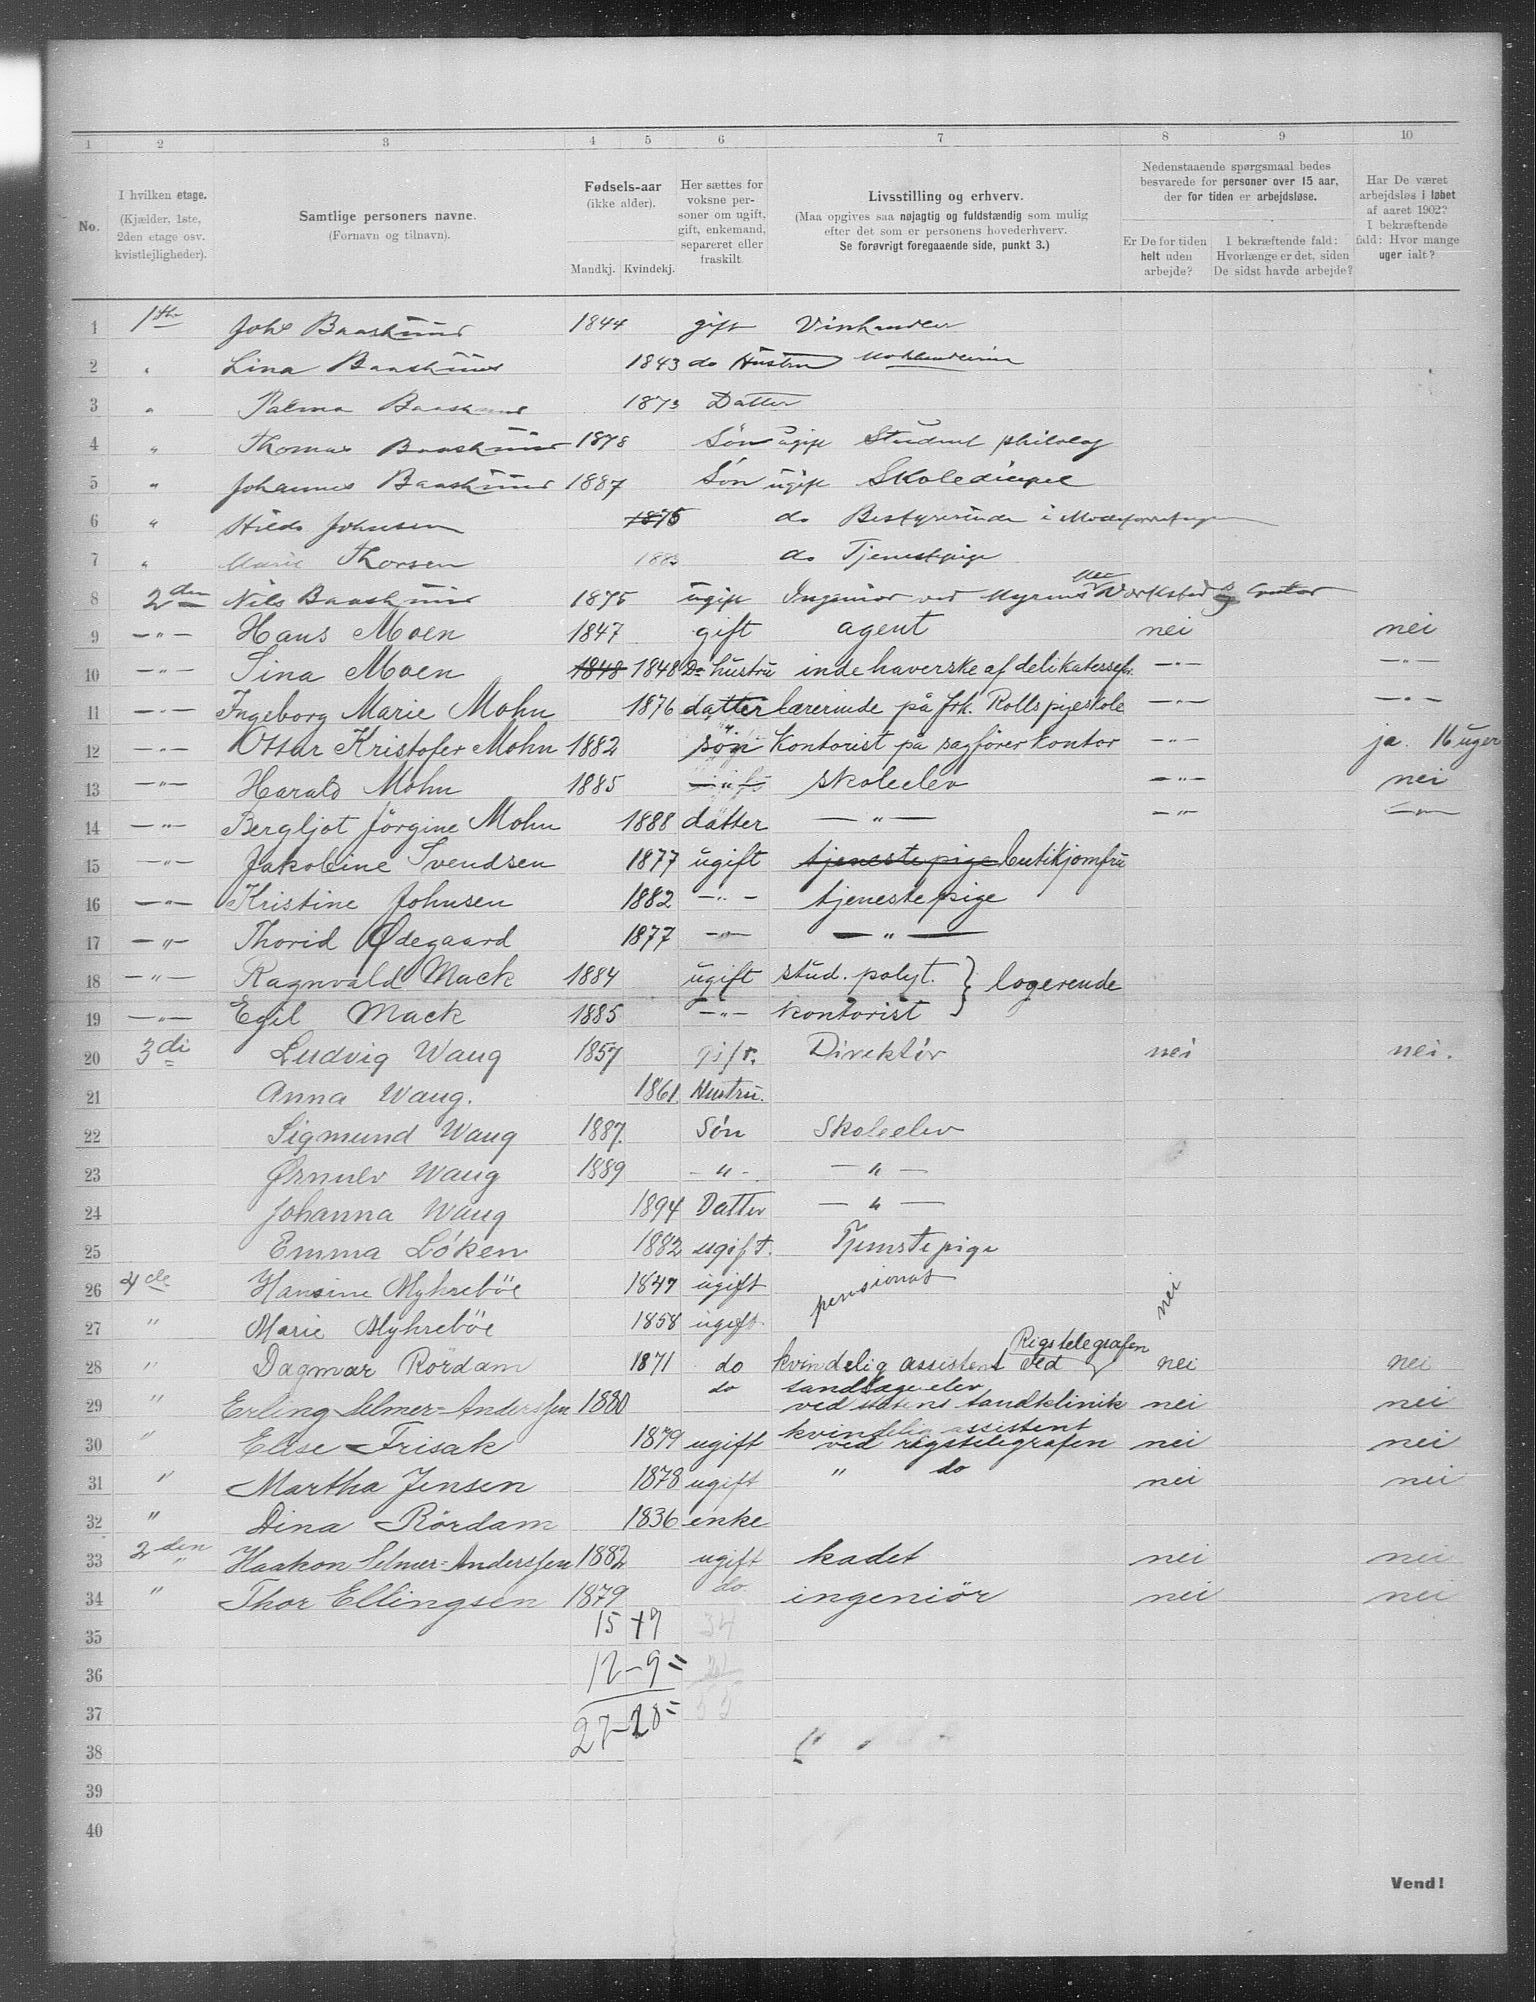 1 2 3 4 5 6 7 8 9 10
No.
I hvilken etage. (Kjælder, 1ste, 2den etage osv. kvistlejligheder).
Samtlige personers navne. (Fornavn og tilnavn).
Fødsels-aar (ikke alder).
Mandkj. Kvindekj.
Her sættes for voksne personer om ugift, gift, enkemand, separeret eller fraskilt
Livsstilling og erhverv. (Maa opgives saa nøjagtig og fuldstændig som mulig efter det som er personens hovederhverv. Se forøvrigt foregaaende side, punkt 3.)
Nedenstaaende spørgsmaal bedes besvarede for personer over 15 aar, der for tiden er arbejdsløse.
Er De for tiden helt uden arbejde?
I bekræftende fald: Hvorlænge er det, siden De sidst havde arbejde?
Har De været arbejdsløs i løbet af aaret 1902? I bekræftende fald: Hvor mange uger ialt?
1 1ste Johs Baashuus 1844 gift Vinhandler
2 " Lina Baashuus 1843 do Hustru
3 " Palma Baashuus 1873 Datter
4 " Thomas Baashuus 1878 Søn ugift Student philolog
5 " Johannes Baashuus 1887 Søn ugift Skoledicipel
6 " Hilda Johnsen 1875 do Bestyrerinde i
7 " Marie Thorsen 1883 do Tjenestepige
8 2den Nils Baashuus 1875 ugift Ingeniør ved Myrens Værksted
9 —"— Hans Moen 1847 gift agent nei nei
10 —"— Sina Moen 1848 1848 Do hustru indehaverske af delikatessefr. —"— —"—
11 —"— Ingeborg Marie Mohn 1876 datter lærerinde på frk. Rolls pigeskole —"— —"—
12 —"— Ottar Kristofer Mohn 1882 søn kontorist på sagførerkontor —"— ja. 16 uger
13 —"— Harald Mohn 1885 —"— skoleelev —"— nei
14 —"— Bergljot Jörgine Mohn 1888 datter —"— —"— —"—
15 —"— Jakobine Svendsen 1877 ugift tjenestepige butikjomfru
16 —"— Kristine Johnsen 1882 —"— tjenestepige
17 —"— Thorid Ødegaard 1877 —"— —"—
18 —"— Ragnvald Mack 1884 ugift stud. polyt. } logerende
19 —"— Egil Mack 1885 —"— kontorist
20 3di Ludvig Waug 1857 gift. Direktör nei nei.
21 Anna Waug. 1861. Hustru.
22 Sigmund Waug 1887. Søn Skoleelev
23 Ørnulv Waug 1889 —"— —"—
24 Johanna Waug 1894 Datter —"—
25 Emma Löken 1882 ugift. Tjenstepige
26 4de Hansine Myhreböe 1847 ugift pensionat nei
27 " Marie Myhreböe 1858 ugift.
28 " Dagmar Rördam 1871 do kvindelig assistent ved Rigstelegrafen nei nei
29 " Erling Selmer-Anderssen 1880 do tandlægeelev ved statens tandklinik nei nei
30 " Elise Frisak 1879 ugift kvindelig assistent ved rigstelegrafen nei nei
31 " Martha Jensen 1878 ugift " do nei nei
32 " Dina Rördam 1836 enke
33 2den " Haakon Selmer-Anderssen 1882 ugift kadet nei nei
34 " Thor Ellingsen 1879 do ingeniör nei nei
35 15 + 19 34
36 12 - 9 = 21
37 27 - 28 = 55
38
39
40
Vend!